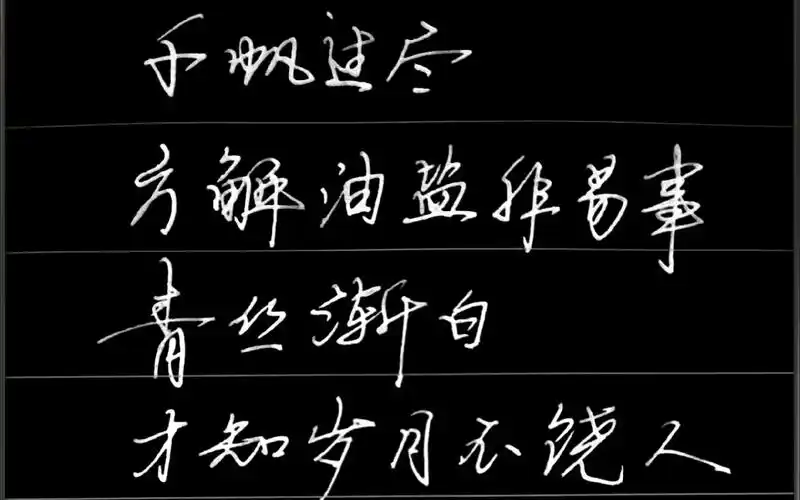 千帆过尽
方解油盐非易事
青丝渐白
才知岁月不饶人